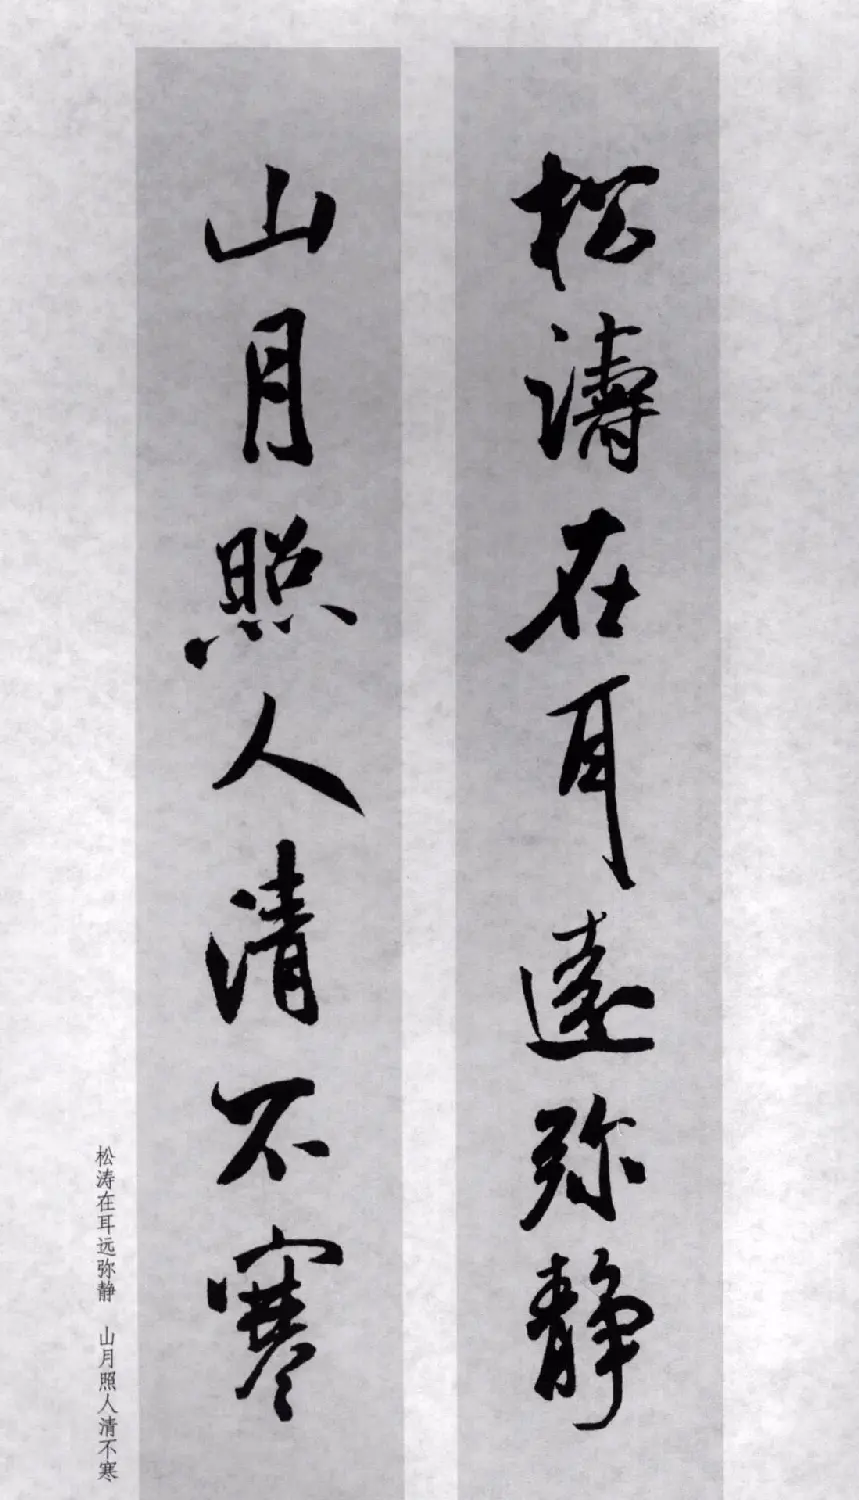 松濤在耳遠弥静
山月照人清不寒
松涛在耳远弥静 山月照人清不寒